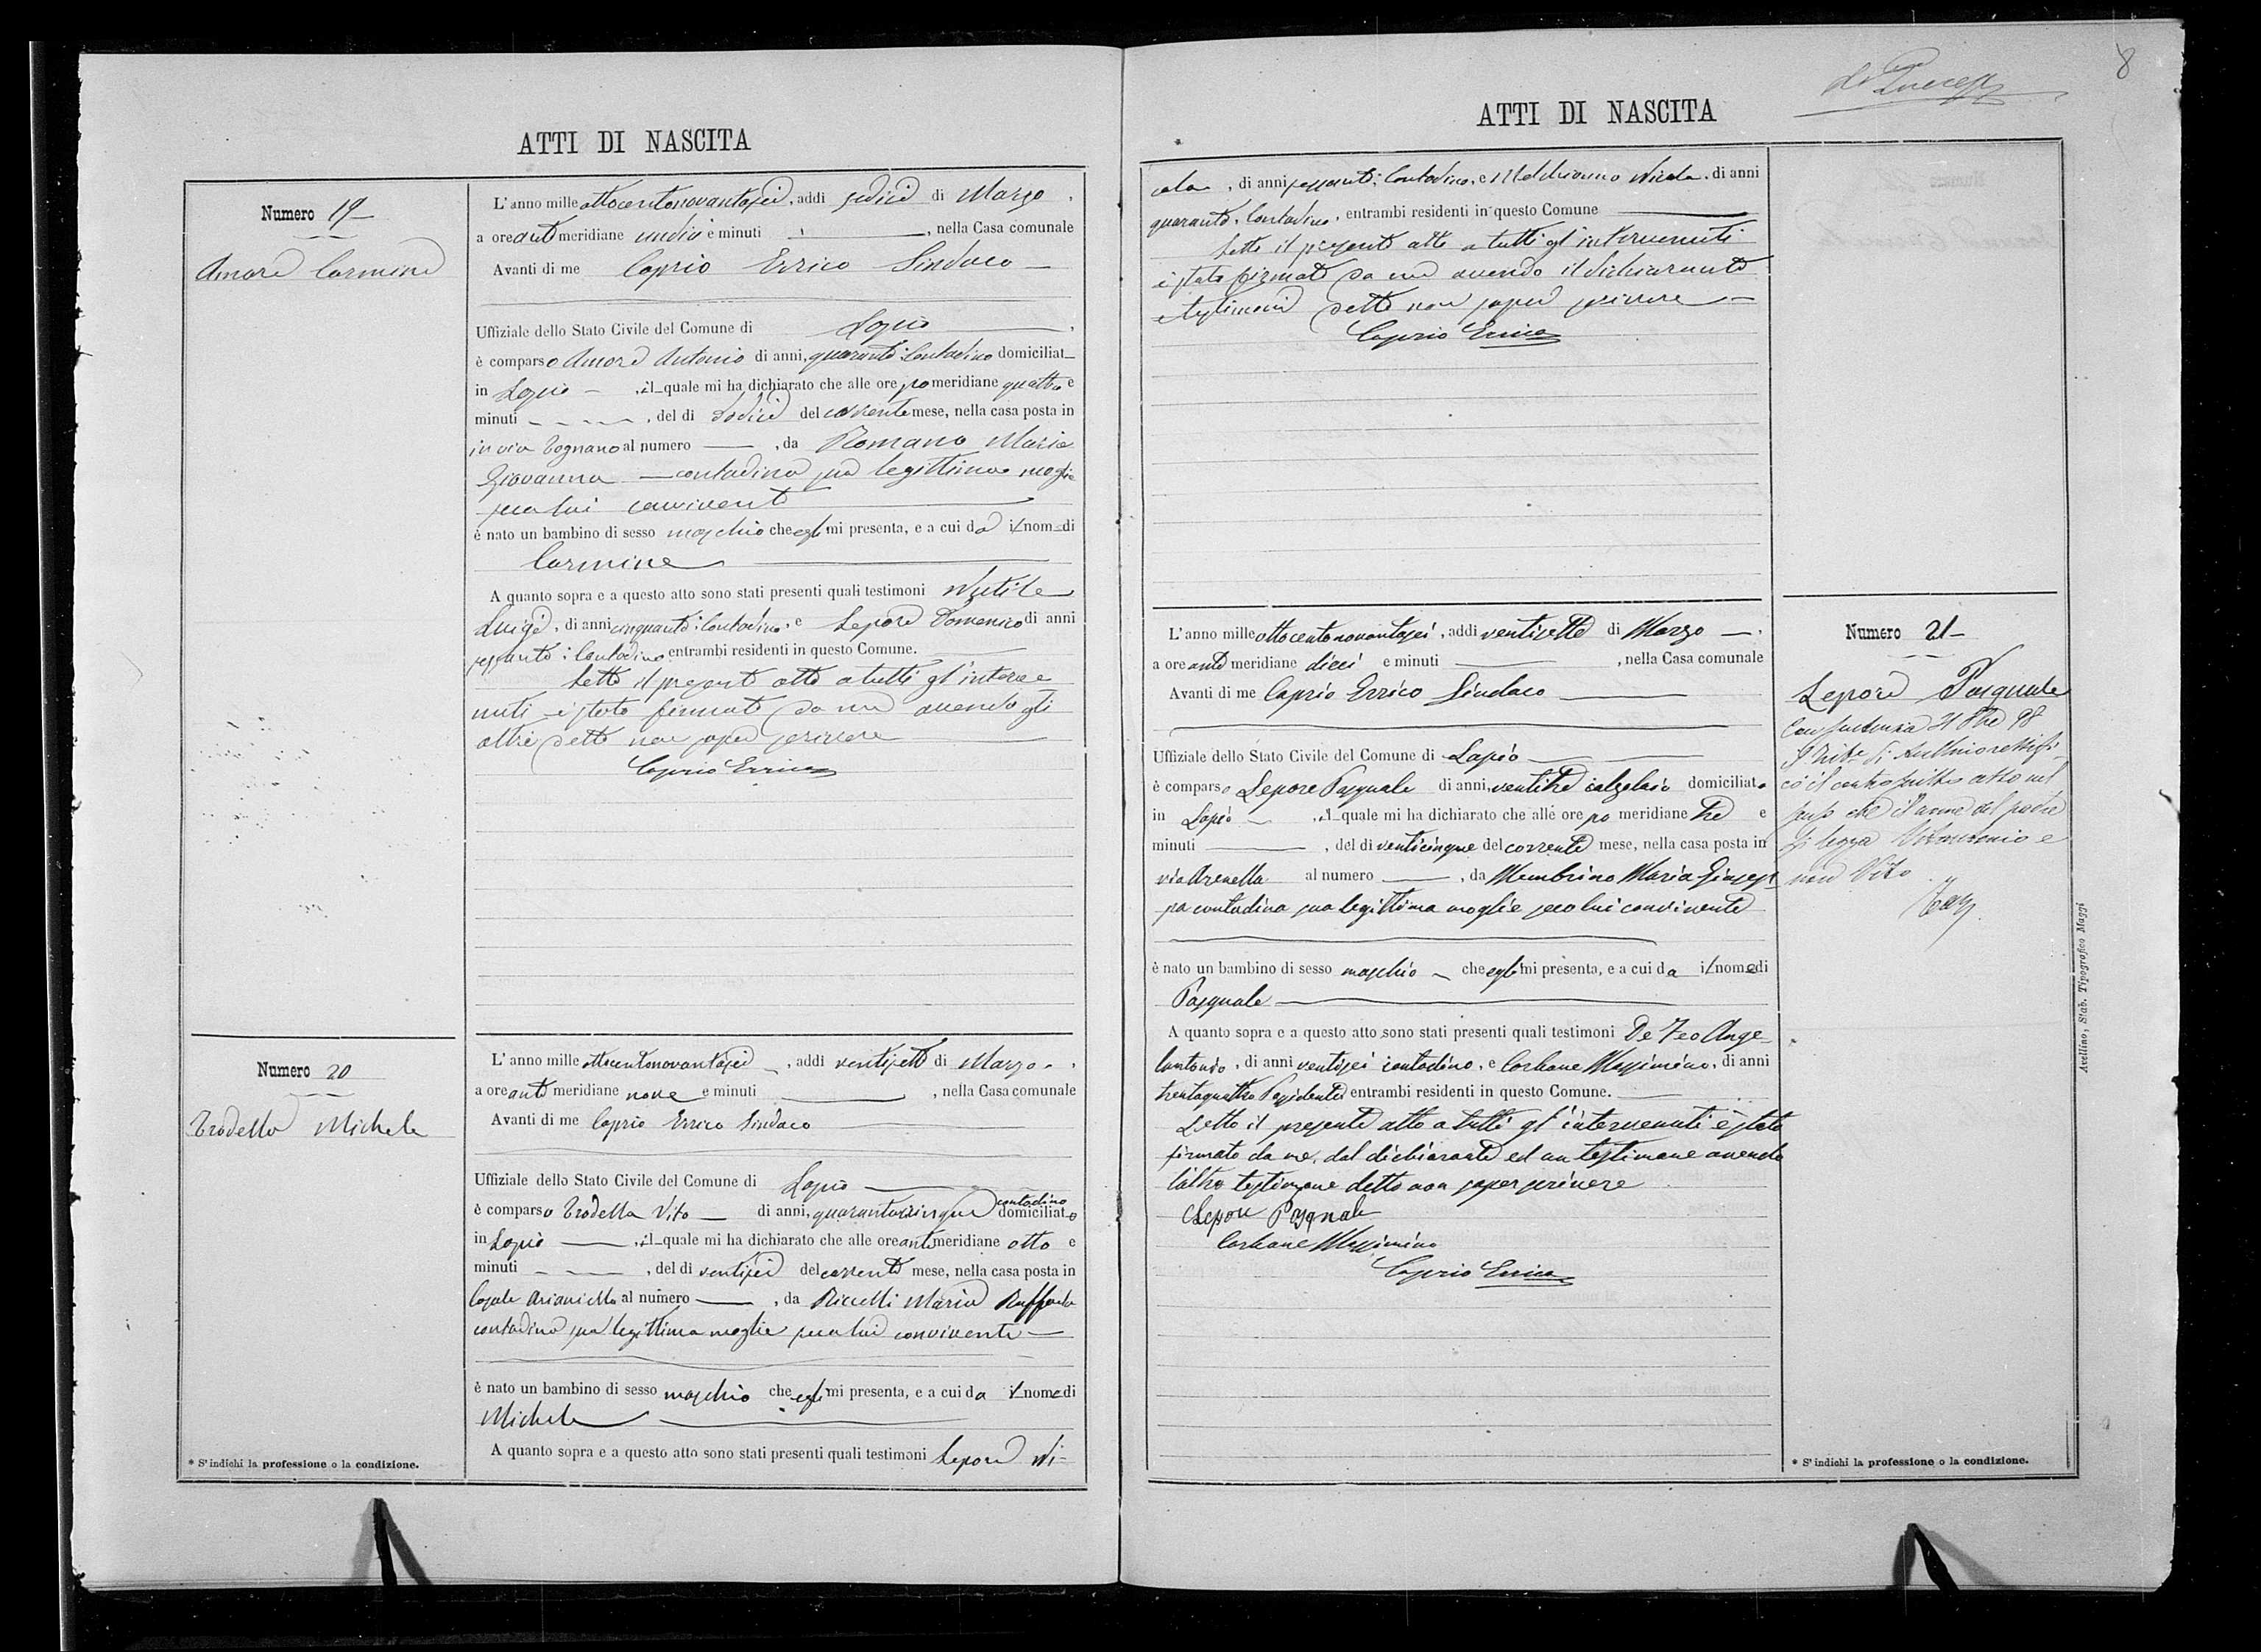 8
ATTI DI NASCITA
Numero 19
Amore Carmine
L'anno mille ottocentonovantasei, addi sedici di Marzo,
a ore anti meridiane undici e minuti , nella Casa comunale
Avanti di me Caprio Errico Sindaco
Uffiziale dello Stato Civile del Comune di Lapio,
è comparso Amore Antonio di anni, quaranta: Contadino domiciliat
in Lapio , il quale mi ha dichiarato che alle ore po meridiane quattro e
minuti , del di dodici del corrente mese, nella casa posta in
in via Tognano al numero , da Romano Maria
Giovanna contadina sua legittima moglie
seco lui convivente
è nato un bambino di sesso maschio che egli mi presenta, e a cui da il nome di
Carmine
A quanto sopra e a questo atto sono stati presenti quali testimoni
Luigi, di anni cinquanta: Contadino, e Lepore Domenico di anni
sessanta: Contadino entrambi residenti in questo Comune.
Letto il presente atto a tutti gl'interve
nuti è stato firmato da me avendo gli
altri detto non saper scrivere
Caprio Errico
Numero 20
Trodella Michele
L'anno mille ottocentonovantasei, addi ventisette di Marzo,
a ore anti meridiane nove e minuti , nella Casa comunale
Avanti di me Caprio Errico Sindaco
Uffiziale dello Stato Civile del Comune di Lapio
è comparso Trodella Vito di anni, quarantacinque contadino domiciliato
in Lapio , il quale mi ha dichiarato che alle ore anti meridiane otto e
minuti , del di ventisei del corrente mese, nella casa posta in
Casale Arianiello al numero , da Riccelli Maria Raffaela
contadina sua legittima moglie seco lui convivente
è nato un bambino di sesso maschio che egli mi presenta, e a cui da il nome di
Michele
A quanto sopra e a questo atto sono stati presenti quali testimoni Lepore Ni-
* S'indichi la professione o la condizione.
ATTI DI NASCITA
cola, di anni sessanta; Contadino, e Nicola, di anni
quaranta, Contadino, entrambi residenti in questo Comune
Letto il presente atto a tutti gl'intervenuti
è stato firmato da me avendo il dichiarante
e testimoni detto non saper scrivere
Caprio Errico
Numero 21
Lepore Pasquale
L'anno mille ottocentonovantasei, addi ventisette di Marzo,
a ore anti meridiane dieci e minuti , nella Casa comunale
Avanti di me Caprio Errico Sindaco
Uffiziale dello Stato Civile del Comune di Lapio
è comparso Lepore Pasquale di anni, ventitre calzolaio domiciliato
in Lapio , il quale mi ha dichiarato che alle ore po meridiane tre e
minuti , del di venticinque del corrente mese, nella casa posta in
via Arenella al numero , da Membrino Maria Giusep
pa contadina sua legittima moglie seco lui convivente
è nato un bambino di sesso maschio che egli mi presenta, e a cui da il nome di
Pasquale
A quanto sopra e a questo atto sono stati presenti quali testimoni De Feo Ange
lantonio, di anni ventisei contadino, e Carbone Massimino, di anni
trentaquattro Possidente entrambi residenti in questo Comune.
Letto il presente atto a tutti gl'intervenuti è stato
firmato da me, dal dichiarante ed un testimone avendo
l'altro testimone detto non saper scrivere
Lepore Pasquale
Carbone Massimino
Caprio Errico
Con sentenza 21 98
il di rettifi
cò il controscritto atto nel
senso che il nome del padre
si legga Vitantonio e
non Vito
Avellino, Stab. Tipografico Maggi
* S'indichi la professione o la condizione.